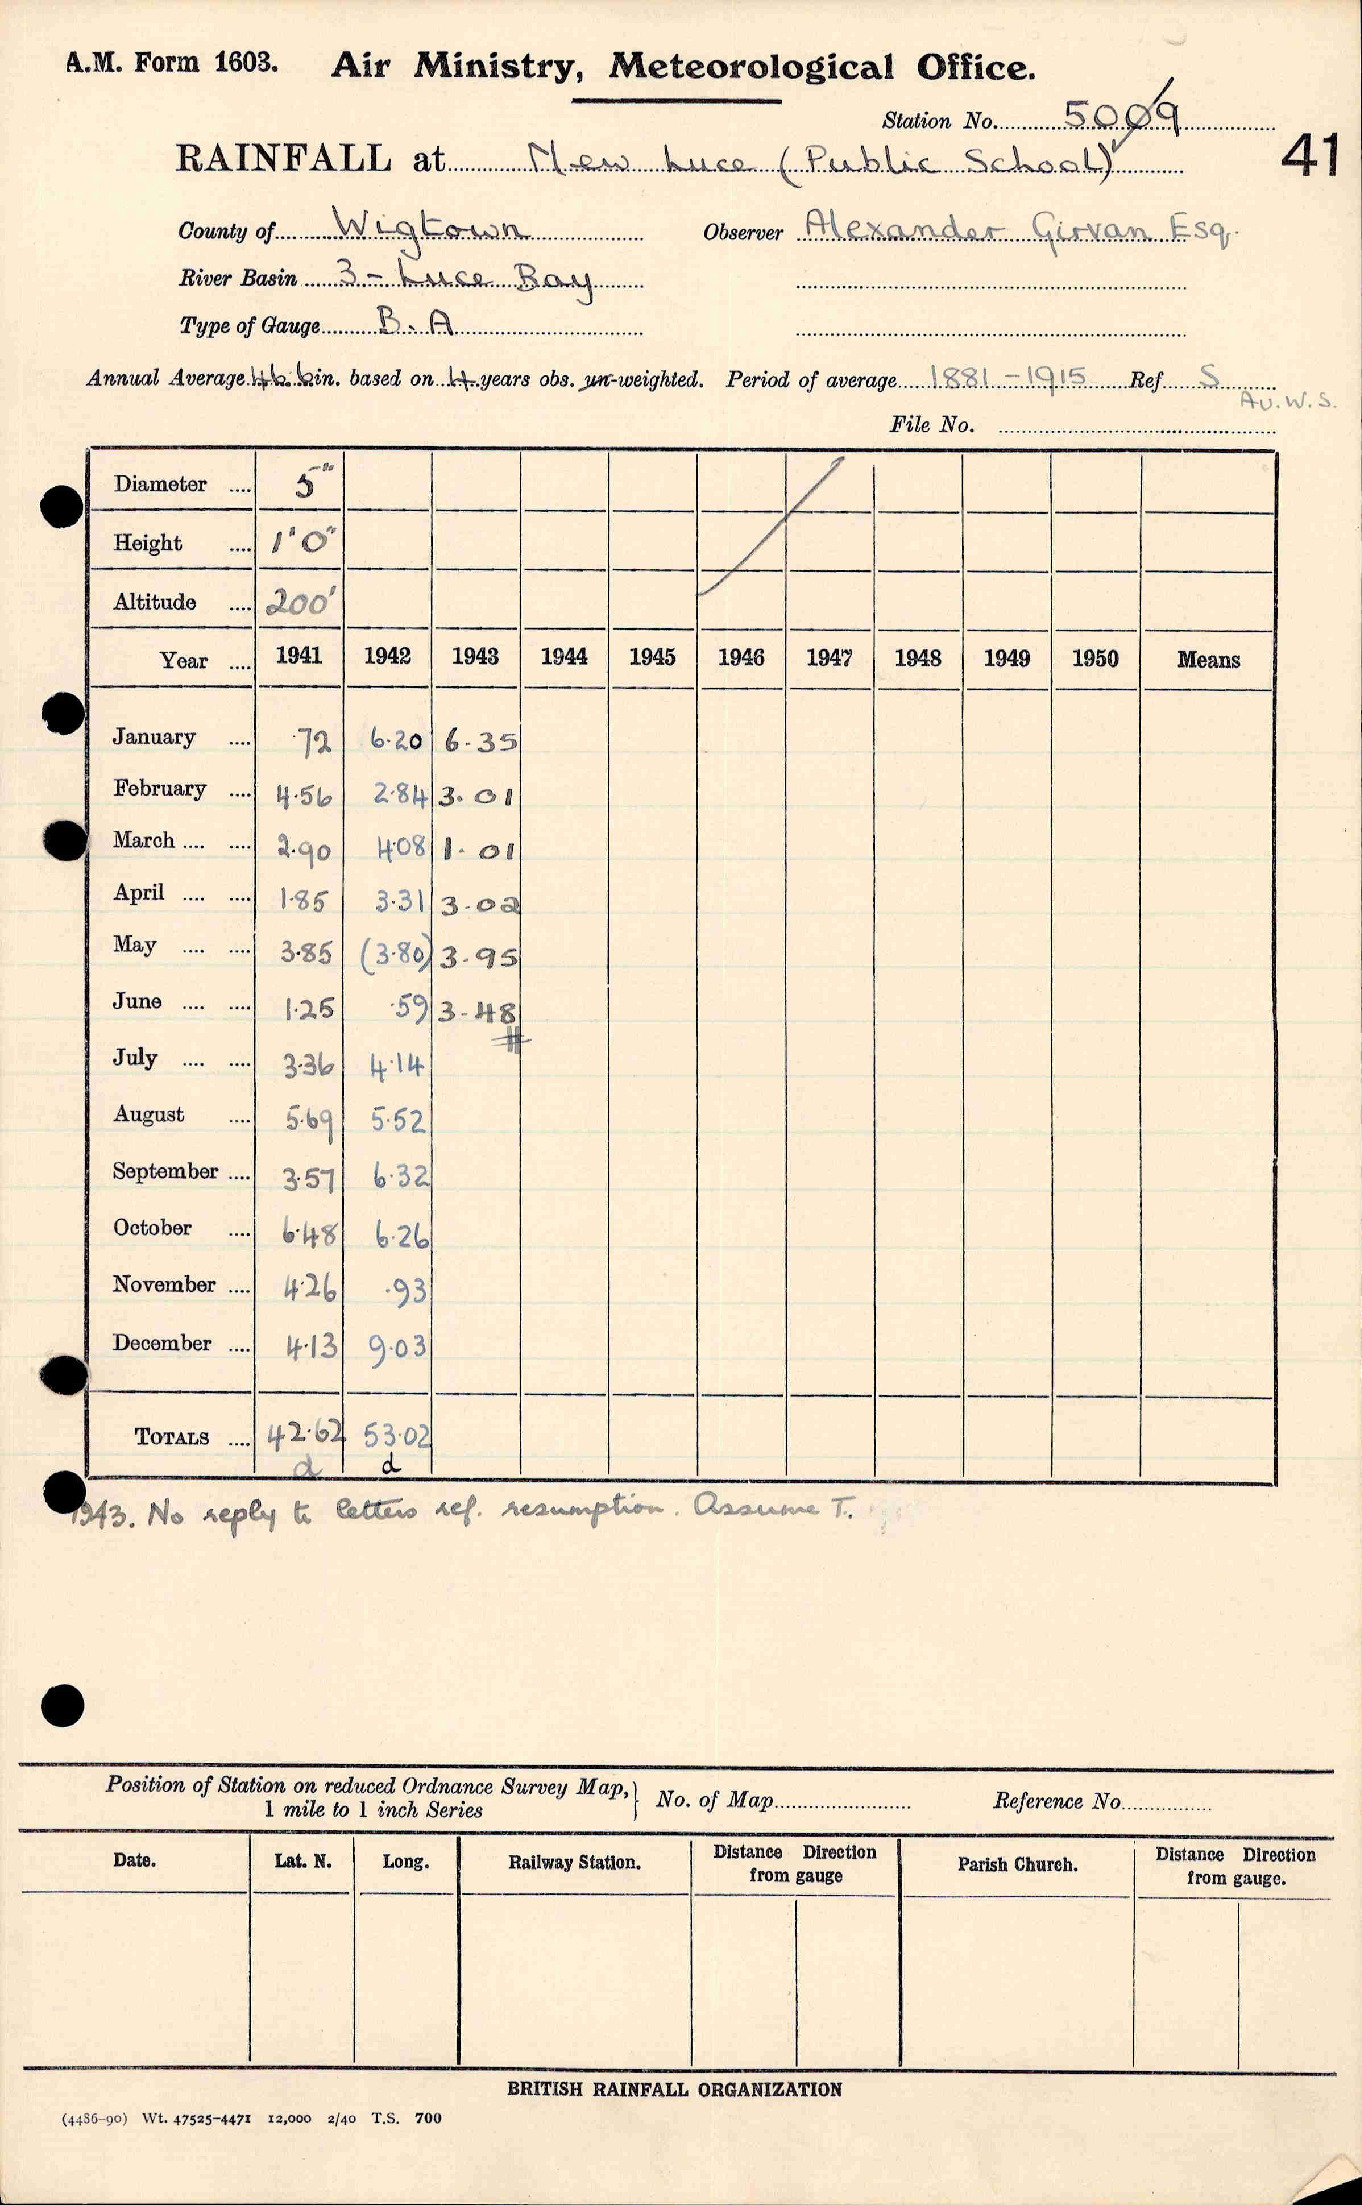 A.M. Form 1603. Air Ministry, Meteorological Office.
Station No. 5009
RAINFALL at New Luce (Public School) 41
County of Wigtown Observer Alexander Girvan Esq.
River Basin 3 - Luce Bay
Type of Gauge B. A
Annual Average 46.6 in. based on 4 years obs. un-weighted. Period of average 1881 - 1915 Ref S
Av. W. S.
File No.
Diameter .... 5"
Height .... 1' 0"
Altitude .... 200'
Year .... 1941 1942 1943 1944 1945 1946 1947 1948 1949 1950 Means
January .... ·72 6·20 6·35
February .... 4·56 2·84 3·01
March .... .... 2·90 4·08 1·01
April .... .... 1·85 3·31 3·02
May .... .... 3·85 (3·80) 3·95
June .... .... 1·25 ·59 3·48
July .... .... 3·36 4·14
August .... 5·69 5·52
September .... 3·57 6·32
October .... 6·48 6·26
November .... 4·26 ·93
December .... 4·13 9·03
TOTALS .... 42·62 53·02
d d
1943. No reply to letters ref. resumption. Assume T.
Position of Station on reduced Ordnance Survey Map, } No. of Map Reference No.
1 mile to 1 inch Series
Date. Lat. N. Long. Railway Station. Distance Direction from gauge Parish Church. Distance Direction from gauge.
BRITISH RAINFALL ORGANIZATION
(4486-90) Wt. 47525-4471 12,000 2/40 T.S. 700